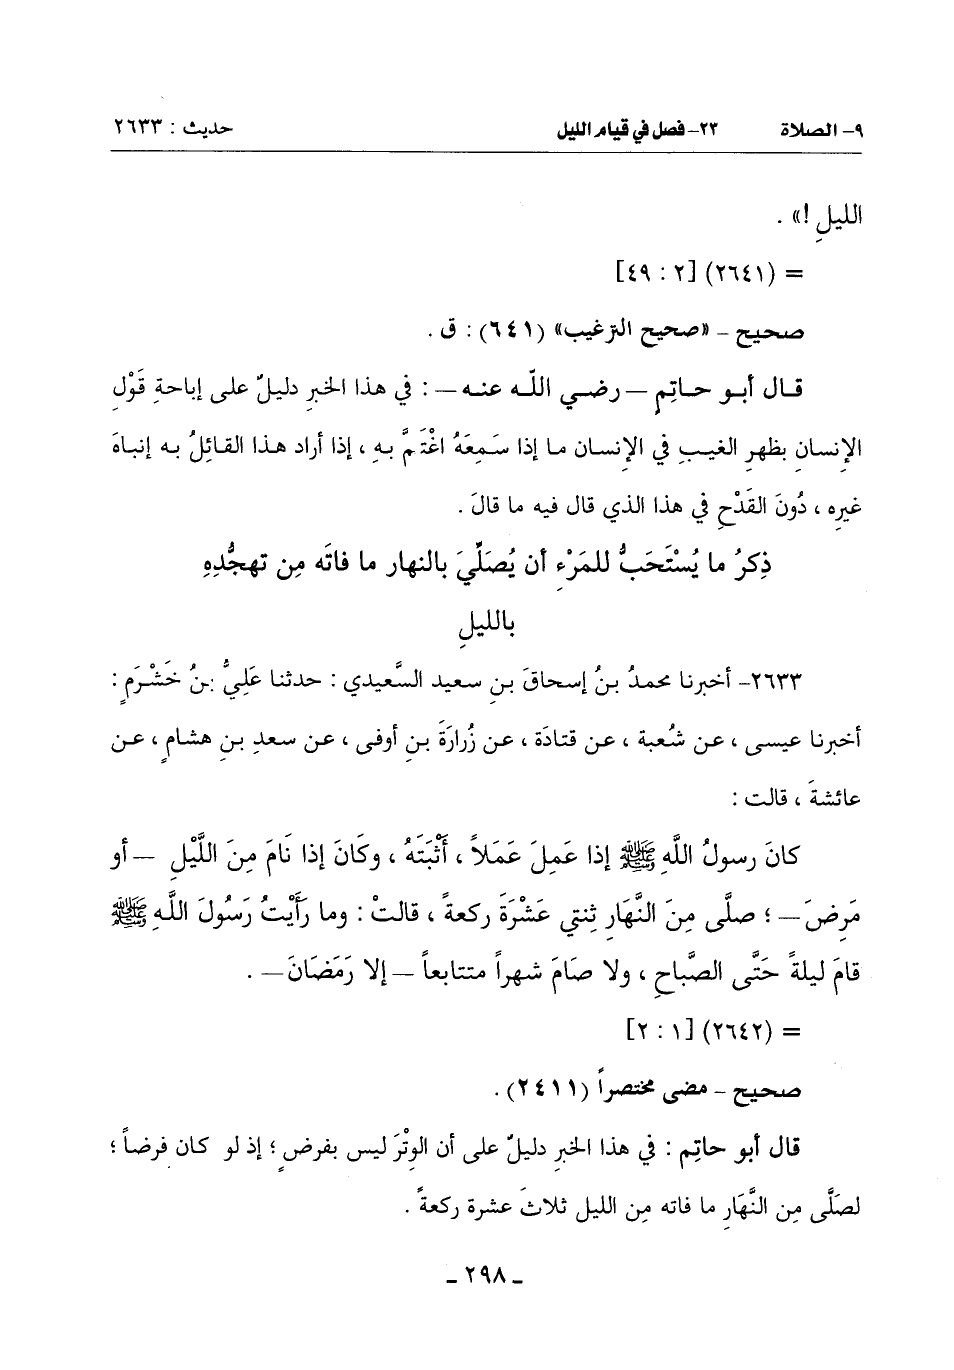 ٩- الصلاة ٢٣- فصل في قيام الليل حديث : ٢٦٣٣
الليلِ !» .
= (٢٦٤١) [٢ : ٤٩]
صحيح - «صحيح الترغيب» (٦٤١) : ق .
قـال أبـو حـاتِم – رضـي اللّـه عنـه – : في هذا الخبرِ دليلٌ على إباحةِ قَوْلِ
الإنسانِ بظهرِ الغيـبِ في الإنسان مـا إذا سَـمِعَهُ اغْتَمَّ بـهِ ، إذا أراد هـذا القـائلُ بـه إنبـاهَ
غيرِه ، دُونَ القَدْحِ في هذا الذي قال فيه ما قالَ .
ذِكرُ ما يُسْتَحَبُّ للمَرْءِ أن يُصَلِّيَ بالنهار ما فاتَه مِن تهجُّدِهِ
بالليلِ
٢٦٣٣- أخبرنـا محمدُ بـنُ إسـحاقَ بـنِ سـعيد السَّعيدي : حدثنـا عَلِيُّ بـنُ خَشْـرَمٍ :
أخبرنا عيسـى ، عـن شُعبة ، عن قتادَة ، عن زُرارَةَ بـنِ أوفى ، عـن سعدِ بنِ هشامٍ ، عـن
عائشةَ ، قالت :
كانَ رسولُ اللَّهِ ﷺ إذا عَمِلَ عَمَلاً ، أَثْبَتَهُ ، وكَانَ إذا نَامَ مِنَ اللَّيْلِ – أو
مَرِضَ – ؛ صلَّى مِنَ النَّهَارِ ثِنتي عَشْرَةَ ركعةً ، قالتْ : وما رَأَيْتُ رَسُولَ اللَّـهِ ﷺ
قامَ ليلةً حَتَّى الصَّباحِ ، ولا صَامَ شهراً متتابعاً – إلا رَمَضَانَ – .
= (٢٦٤٢) [١ : ٢]
صحيح - مضى مختصراً (٢٤١١) .
قال أبو حاتِم : في هذا الخبرِ دليلٌ على أن الوِتْرَ ليس بفرضٍ ؛ إذ لو كان فرضاً ؛
لصَلَّى مِن النَّهَارِ ما فاته مِن الليل ثلاثَ عشرة ركعةً .
- ٢٩٨ -